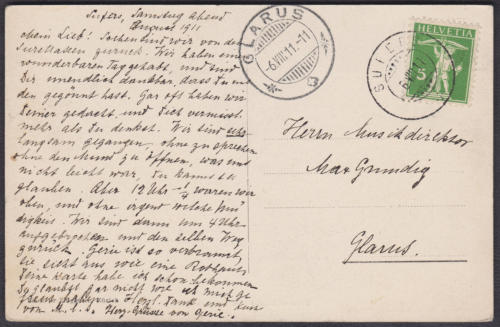 Sufers, Samstag abend
August 1911
Mein Lieb! Soeben sind wir von den
Surettaseen zurück. Wir haben einen
wunderbaren Tag gehabt, und sind
Dir unendlich dankbar, dass Du uns
den gegönnt hast. Gar oft haben wir
Deiner gedacht, und Dich vermisst
mehr als Du denkst. Wir sind sehr
langsam gegangen, ohne zu sprechen
ohne den Mund zu öffnen, was uns
nicht leicht war, Du kannst es
glauben. Aber 12 Uhr waren wir
oben, und ohne irgend welche Mü-
digkeit. Wir sind dann um 4 Uhr
aufgebrochen und den selben Weg
zurück. Gerie ist so verbrannt,
sie sieht aus wie eine Rothaut
Deine Karte habe ich schon bekommen
Du glaubst gar nicht wie ich mich
freue Herzl. Dank und
von M. Herz. Grüsse von Gerie.
GLARUS
6.VIII.11.-11
SUFERS
HELVETIA
5
Herrn Musikdirektor
Max Grundig
Glarus.